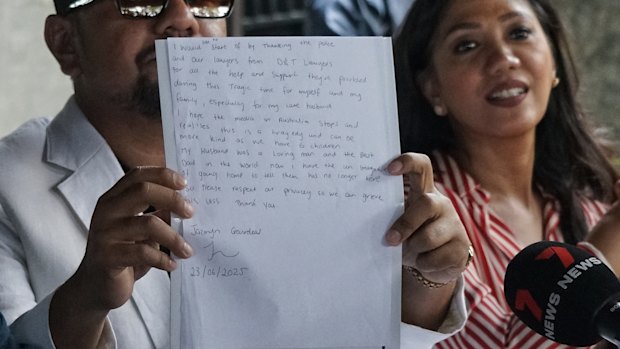 I would start of by Thanking the police
and our lawyers from D&T Lawyers
for all the help and support they've provided
during this Tragic time for myself and my
family, especially for my late husband
I hope the media in Australia Stops and
realises this is a tragedy and can be
more kind as we have to children
My Husband was a Loving man and the Best
Dad in the world now I have the
of going home to tell them has no longer here
So Please respect our privacy so we can grieve
this loss Thank You
Jazmyn
23/06/2025
7 NEWS
7 NEWS